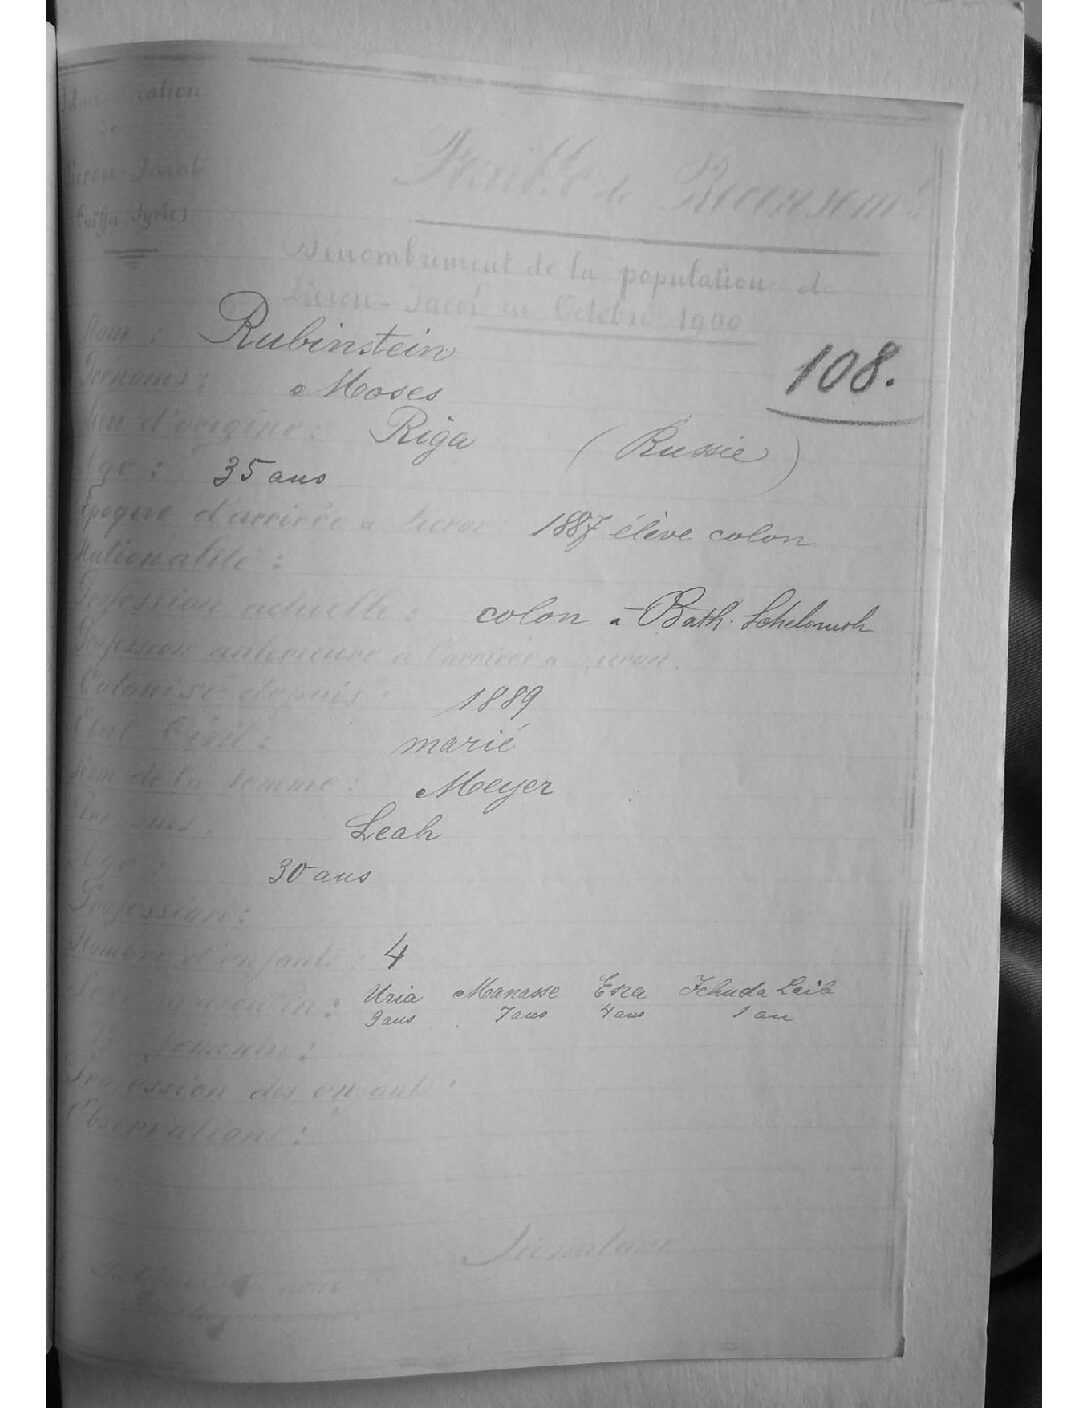 Administration
de
Zicron-Jacob
Caiffa (Syrie)
Feuille de Recensemt
Dénombrement de la population de
Zicron-Jacob en Octobre 1900
Nom : Rubinstein
108.
Prénoms : Moses
Lieu d'origine : Riga (Russie)
Age : 35 ans
Epoque d'arrivée à Zicron 1887 élève colon
Nationalité :
Profession actuelle : colon à Bath. Schelomoh
Profession antérieure à l'arrivée à Zicron :
Colonisé depuis : 1889
Etat Civil : marié
Nom de la femme : Meyer
Prénoms : Leah
Age : 30 ans
Profession :
Nombre d'enfants : 4
Sexe masculin : Uria Manasse Esra Jehuda Leib
9 ans 7 ans 4 ans 1 an
féminin :
Profession des enfants :
Observations :
Signature